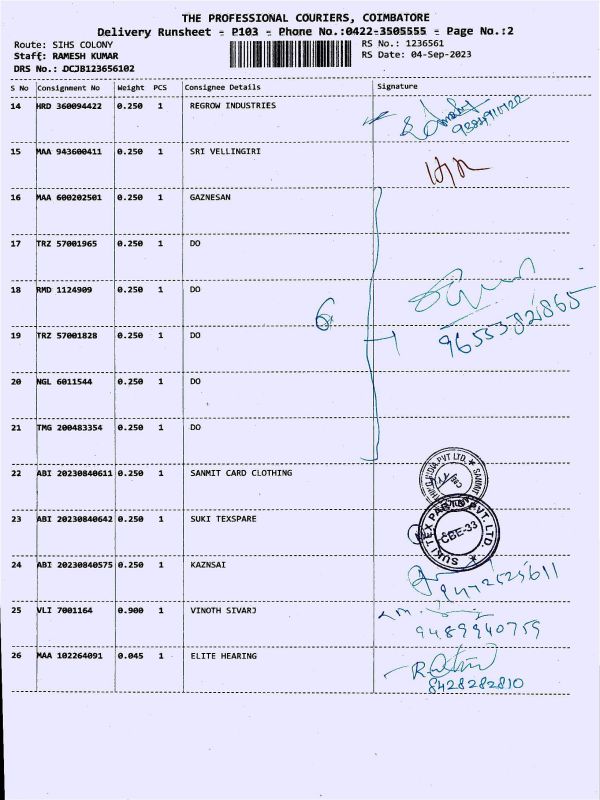 THE PROFESSIONAL COURIERS, COIMBATORE
Delivery Runsheet - P103 - Phone No.:0422-3505555 - Page No.:2
Route: SIHS COLONY RS No.: 1236561
Staff: RAMESH KUMAR RS Date: 04-Sep-2023
DRS No.: DCJB123656102
S No Consignment No Weight PCS Consignee Details Signature
14 HRD 360094422 0.250 1 REGROW INDUSTRIES
15 MAA 943600411 0.250 1 SRI VELLINGIRI
16 MAA 600202501 0.250 1 GAZNESAN
17 TRZ 57001965 0.250 1 DO
18 RMD 1124909 0.250 1 DO
6
96553 821865
19 TRZ 57001828 0.250 1 DO
20 NGL 6011544 0.250 1 DO
21 TMG 200483354 0.250 1 DO
22 ABI 20230840611 0.250 1 SANMIT CARD CLOTHING
23 ABI 20230840642 0.250 1 SUKI TEXSPARE
SUKI TEX PVT. LTD.
CBE-33
24 ABI 20230840575 0.250 1 KAZNSAI
25 VLI 7001164 0.900 1 VINOTH SIVARJ
9489940759
26 MAA 102264091 0.045 1 ELITE HEARING
8428282810